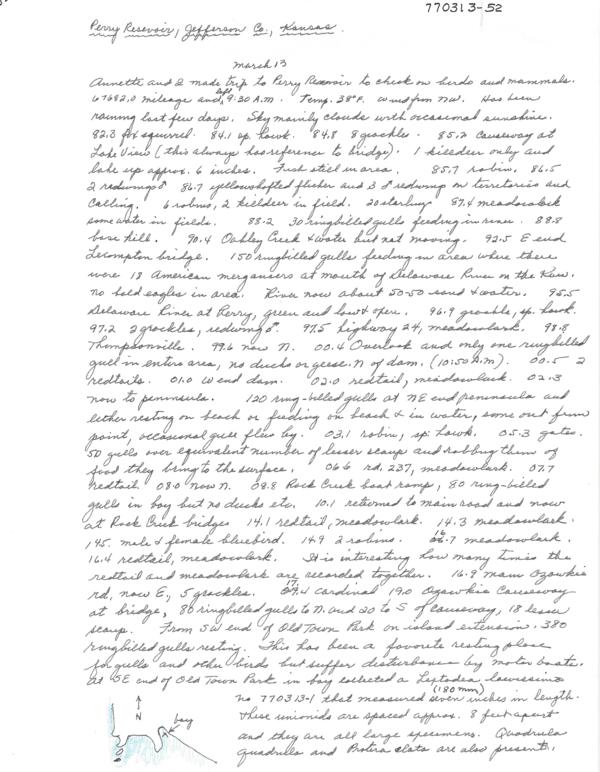 770313-52
Perry Resevoir, Jefferson Co., Kansas.
March 13
Annette and I made trip to Perry Resevoir to check on birds and mammals.
67682.0 mileage and left 9:30 A.M. Temp. 38°F. wind from NW. Has been
raining last few days. Sky mainly cloudy with occasional sunshine.
82.3 fox squirrel. 84.1 sp. hawk. 84.8 8 grackles. 85.2 Causeway at
Lake View (this always has reference to bridge). 1 killdeer only and
lake up approx. 6 inches. Fresh still in area. 85.7 robin. 86.5
2 redwings ♂ 86.7 yellowshafted flicker and 3 ♂ redwing on territories and
calling. 6 robins, 2 killdeer in field. 20 starling 87.4 meadowlark
some water in fields. 88.2 30 ringbilled gulls feeding in river. 88.8
base hill. 90.4 Oakley Creek & water but not moving. 92.5 E end
Lecompton bridge. 150 ringbilled gulls feeding in area where there
were 18 American mergansers at mouth of Delaware River on the Kaw.
No bald eagles in area. River now about 50-50 sand & water. 95.5
Delaware River at Perry, green and low & open. 96.9 grackle, sp. hawk.
97.2 2 grackles, redwing ♂. 97.5 highway 24, meadowlark. 98.8
Thompsonville. 99.6 now N. 00.4 Overlook and only one ringbilled
gull in entire area, no ducks or geese N of dam. (10:50 A.M.) 00.5 2
redtails. 01.0 W end dam. 02.0 redtail, meadowlark. 02.3
now to peninsula. 120 ring-billed gulls at NE end peninsula and
either resting on beach or feeding on beach & in water, some out from
point, occasional gull flew by. 03.1 robin, sp. hawk. 05.3 gates.
50 gulls over equivalent number of lesser scaup and robbing them of
food they bring to the surface. 06.6 rd. 237, meadowlark. 07.7
redtail 08.0 now N. 08.8 Rock Creek boat ramp, 80 ring-billed
gulls in bay but no ducks etc. 10.1 returned to main road and now
at Rock Creek bridges 14.1 redtail, meadowlark. 14.3 meadowlark.
14.5. male & female bluebird. 14.9 2 robins. 16.7 meadowlark.
16.4 redtail, meadowlark. It is interesting how many times the
redtail and meadowlark are recorded together. 16.9 main Ozawkie
rd, now E, 5 grackles. 17.4 cardinal 19.0 Ozawkie Causeway
at bridge, 80 ringbilled gulls to N. and 20 to S of causeway, 18 lesser
scaup. From SW end of Old Town Park on island extension. 380
ringbilled gulls resting. This has been a favorite resting place
for gulls and other birds but suffer disturbance by motor boats.
At SE end of Old Town Park in bay collected a Leptodea laevissima
no 770313-1 that measured seven (180 mm) inches in length.
These unionids are spaced approx. 8 feet apart
and they are all large specimens. Quadrula
quadrula and Protera alata are also present.
N
bay